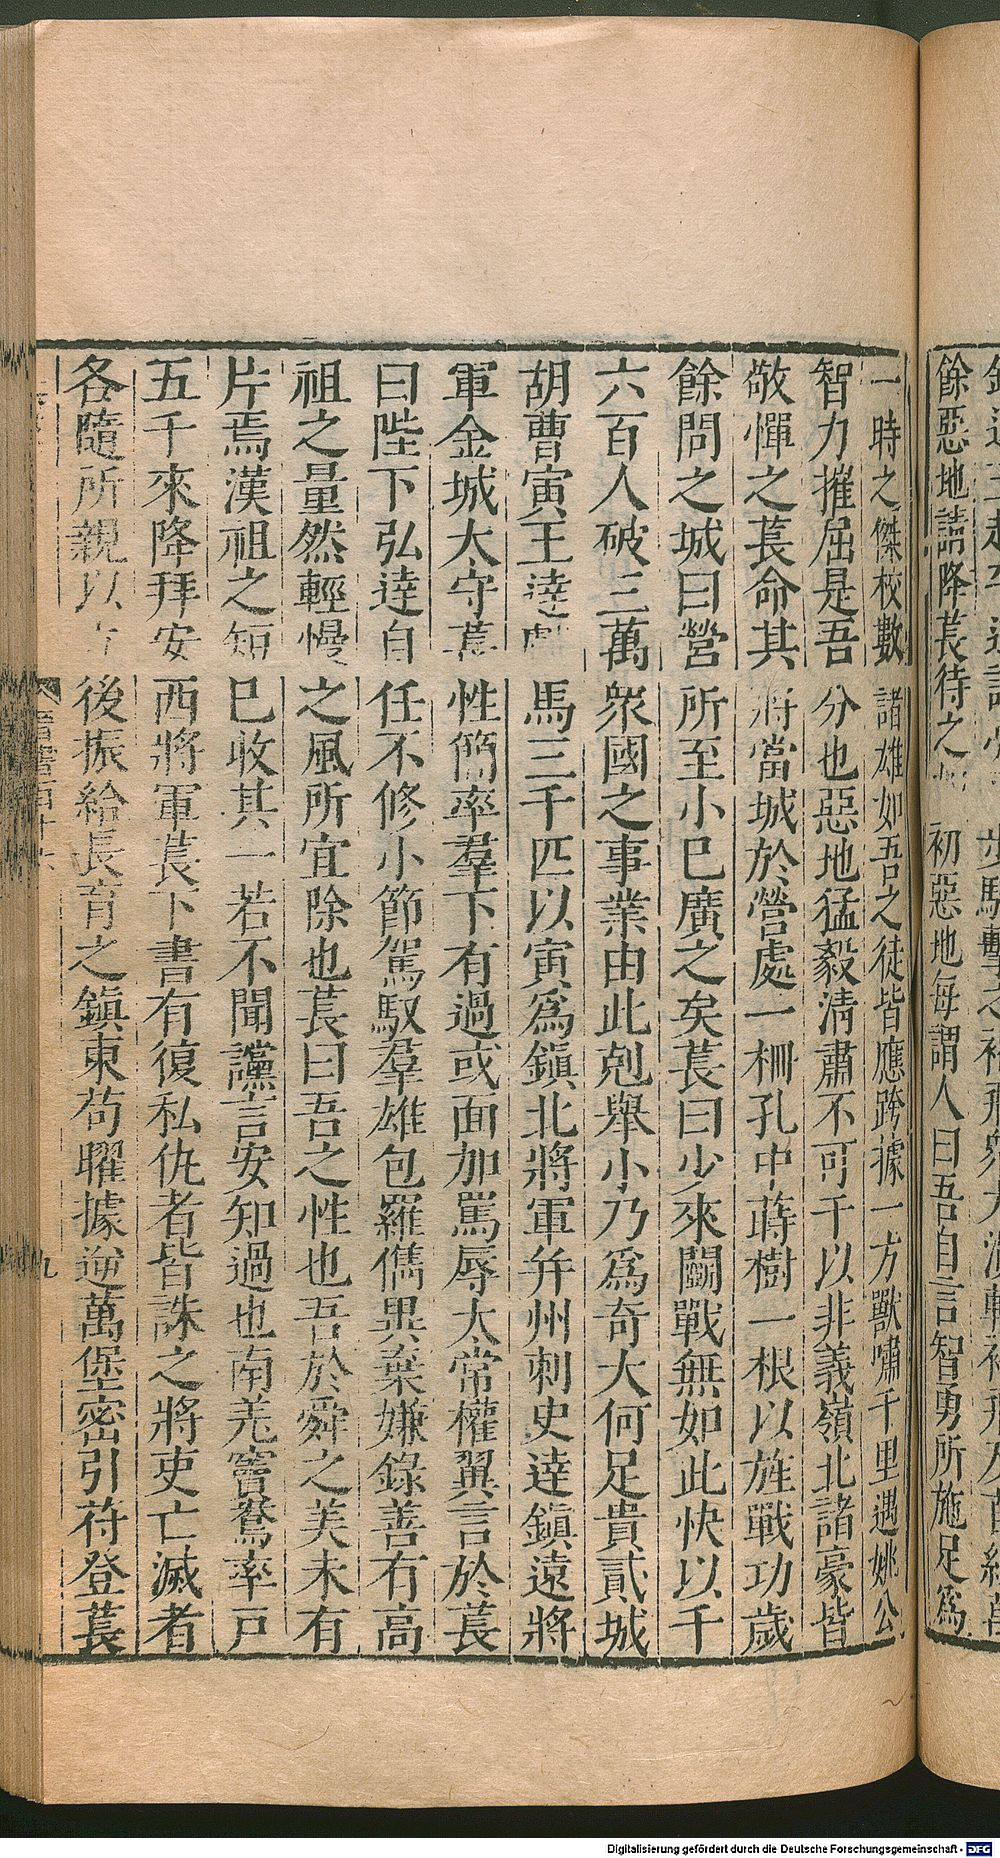 餘惡地請降萇待之 初惡地每謂人曰吾自言智勇所施足爲
一時之傑校數諸雄如吾之徒皆應跨據一方獸嘯千里遇姚公
智力摧屈是吾分也惡地猛毅清肅不可干以非義嶺北諸豪皆
敬憚之萇命其將當城於營處一柵孔中蒔樹一根以旌戰功歲
餘問之城曰營所至小已廣之矣萇曰少來鬬戰無如此快以千
六百人破三萬衆國之事業由此剋舉小乃爲奇大何足貴貳城
胡曹寅王達 馬三千匹以寅爲鎮北將軍并州刺史達鎮遠將
軍金城太守萇性簡率羣下有過或面加罵辱太常權翼言於萇
曰陛下弘達自任不修小節駕馭羣雄包羅儁異棄嫌錄善有高
祖之量然輕慢之風所宜除也萇曰吾之性也吾於舜之美未有
片焉漢祖之短已收其一若不聞讜言安知過也南羌竇鴦率戶
五千來降拜安西將軍萇下書有復私仇者皆誅之將吏亡滅者
各隨所親以 後振給長育之鎮東苟曜據逆萬堡密引苻登萇
晉書百十六
九
Digitalisierung gefördert durch die Deutsche Forschungsgemeinschaft - DFG